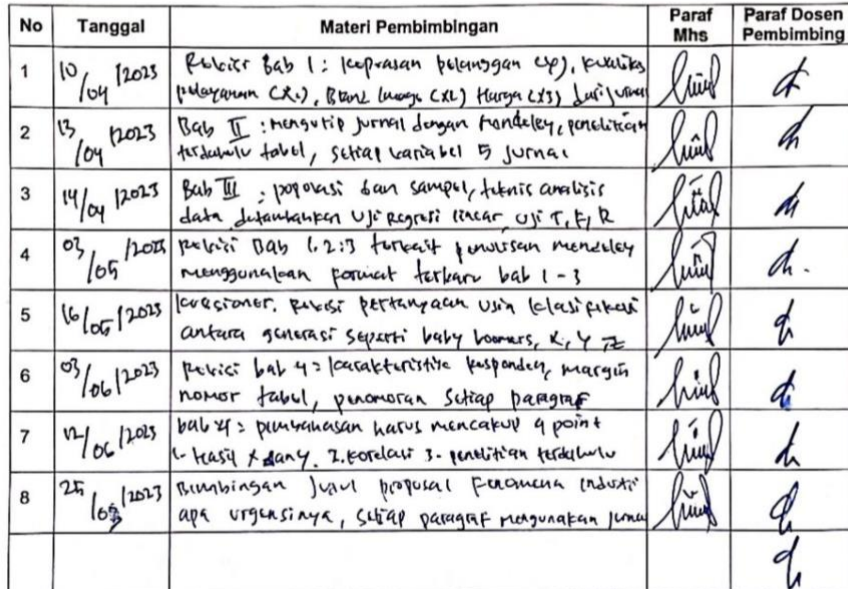 No Tanggal Materi Pembimbingan Paraf Mhs Paraf Dosen Pembimbing
1 10/04/2023 Revisi Bab 1 : kepuasan pelanggan (Y), kualitas
pelayanan (X1), Brand Image (X2) Harga (X3) dari jurnal
2 13/04/2023 Bab II : mengutip jurnal dengan mendeley, penelitian
terdahulu tabel, setiap variabel 5 jurnal
3 14/04/2023 Bab III : populasi dan sampel, teknis analisis
data ditambahkan Uji Regresi linear, Uji T, F, R
4 03/05/2023 Revisi Bab 1.2:3 terkait penulisan mendeley
menggunakan format terbaru bab 1-3
5 16/05/2023 kuesioner. Revisi pertanyaan usia klasifikasi
antara generasi seperti baby boomers, X, Y Z
6 03/06/2023 Revisi bab 4 = karakteristik responden, margin
nomor tabel, penomoran setiap paragraf
7 12/06/2023 bab 4 = pembahasan harus mencakup 4 point
1. Hasil X dan Y. 2. korelasi 3. penelitian terdahulu
8 25/03/2023 Bimbingan Judul proposal Fenomena industri
apa urgensinya, setiap paragraf mengunakan jurnal